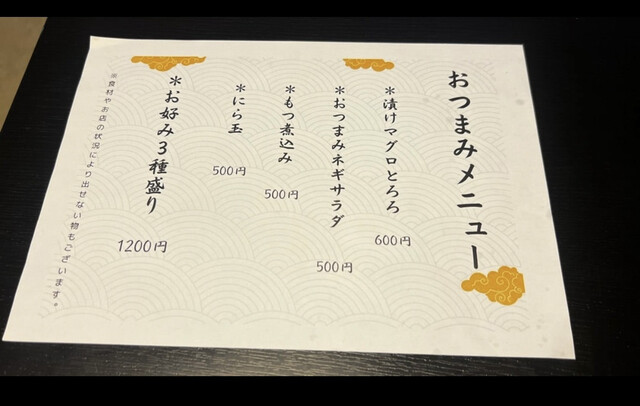 おつまみメニュー
*漬けマグロとろろ
600円
*おつまみネギサラダ
500円
*もつ煮込み
500円
*にら玉
500円
*お好み3種盛り
1200円
※食材やお店の状況により出せない物もございます。